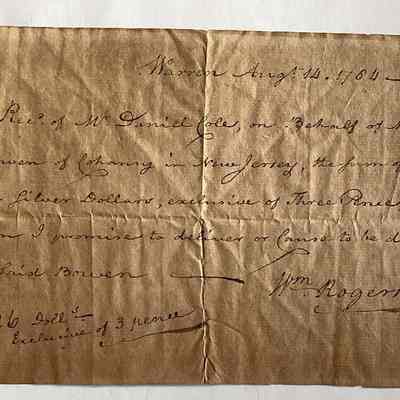 Warren Augt. 14. 1784 —
Recd. of Mr. Daniel Cole, on Behalf of
Bowen of Cohansy in New Jersey, the sum of
Silver Dollars, exclusive of Three Pence,
I promise to deliver or Cause to be
said Bowen —
Wm. Rogers
26 Dolls.
Exclusive of 3 pence